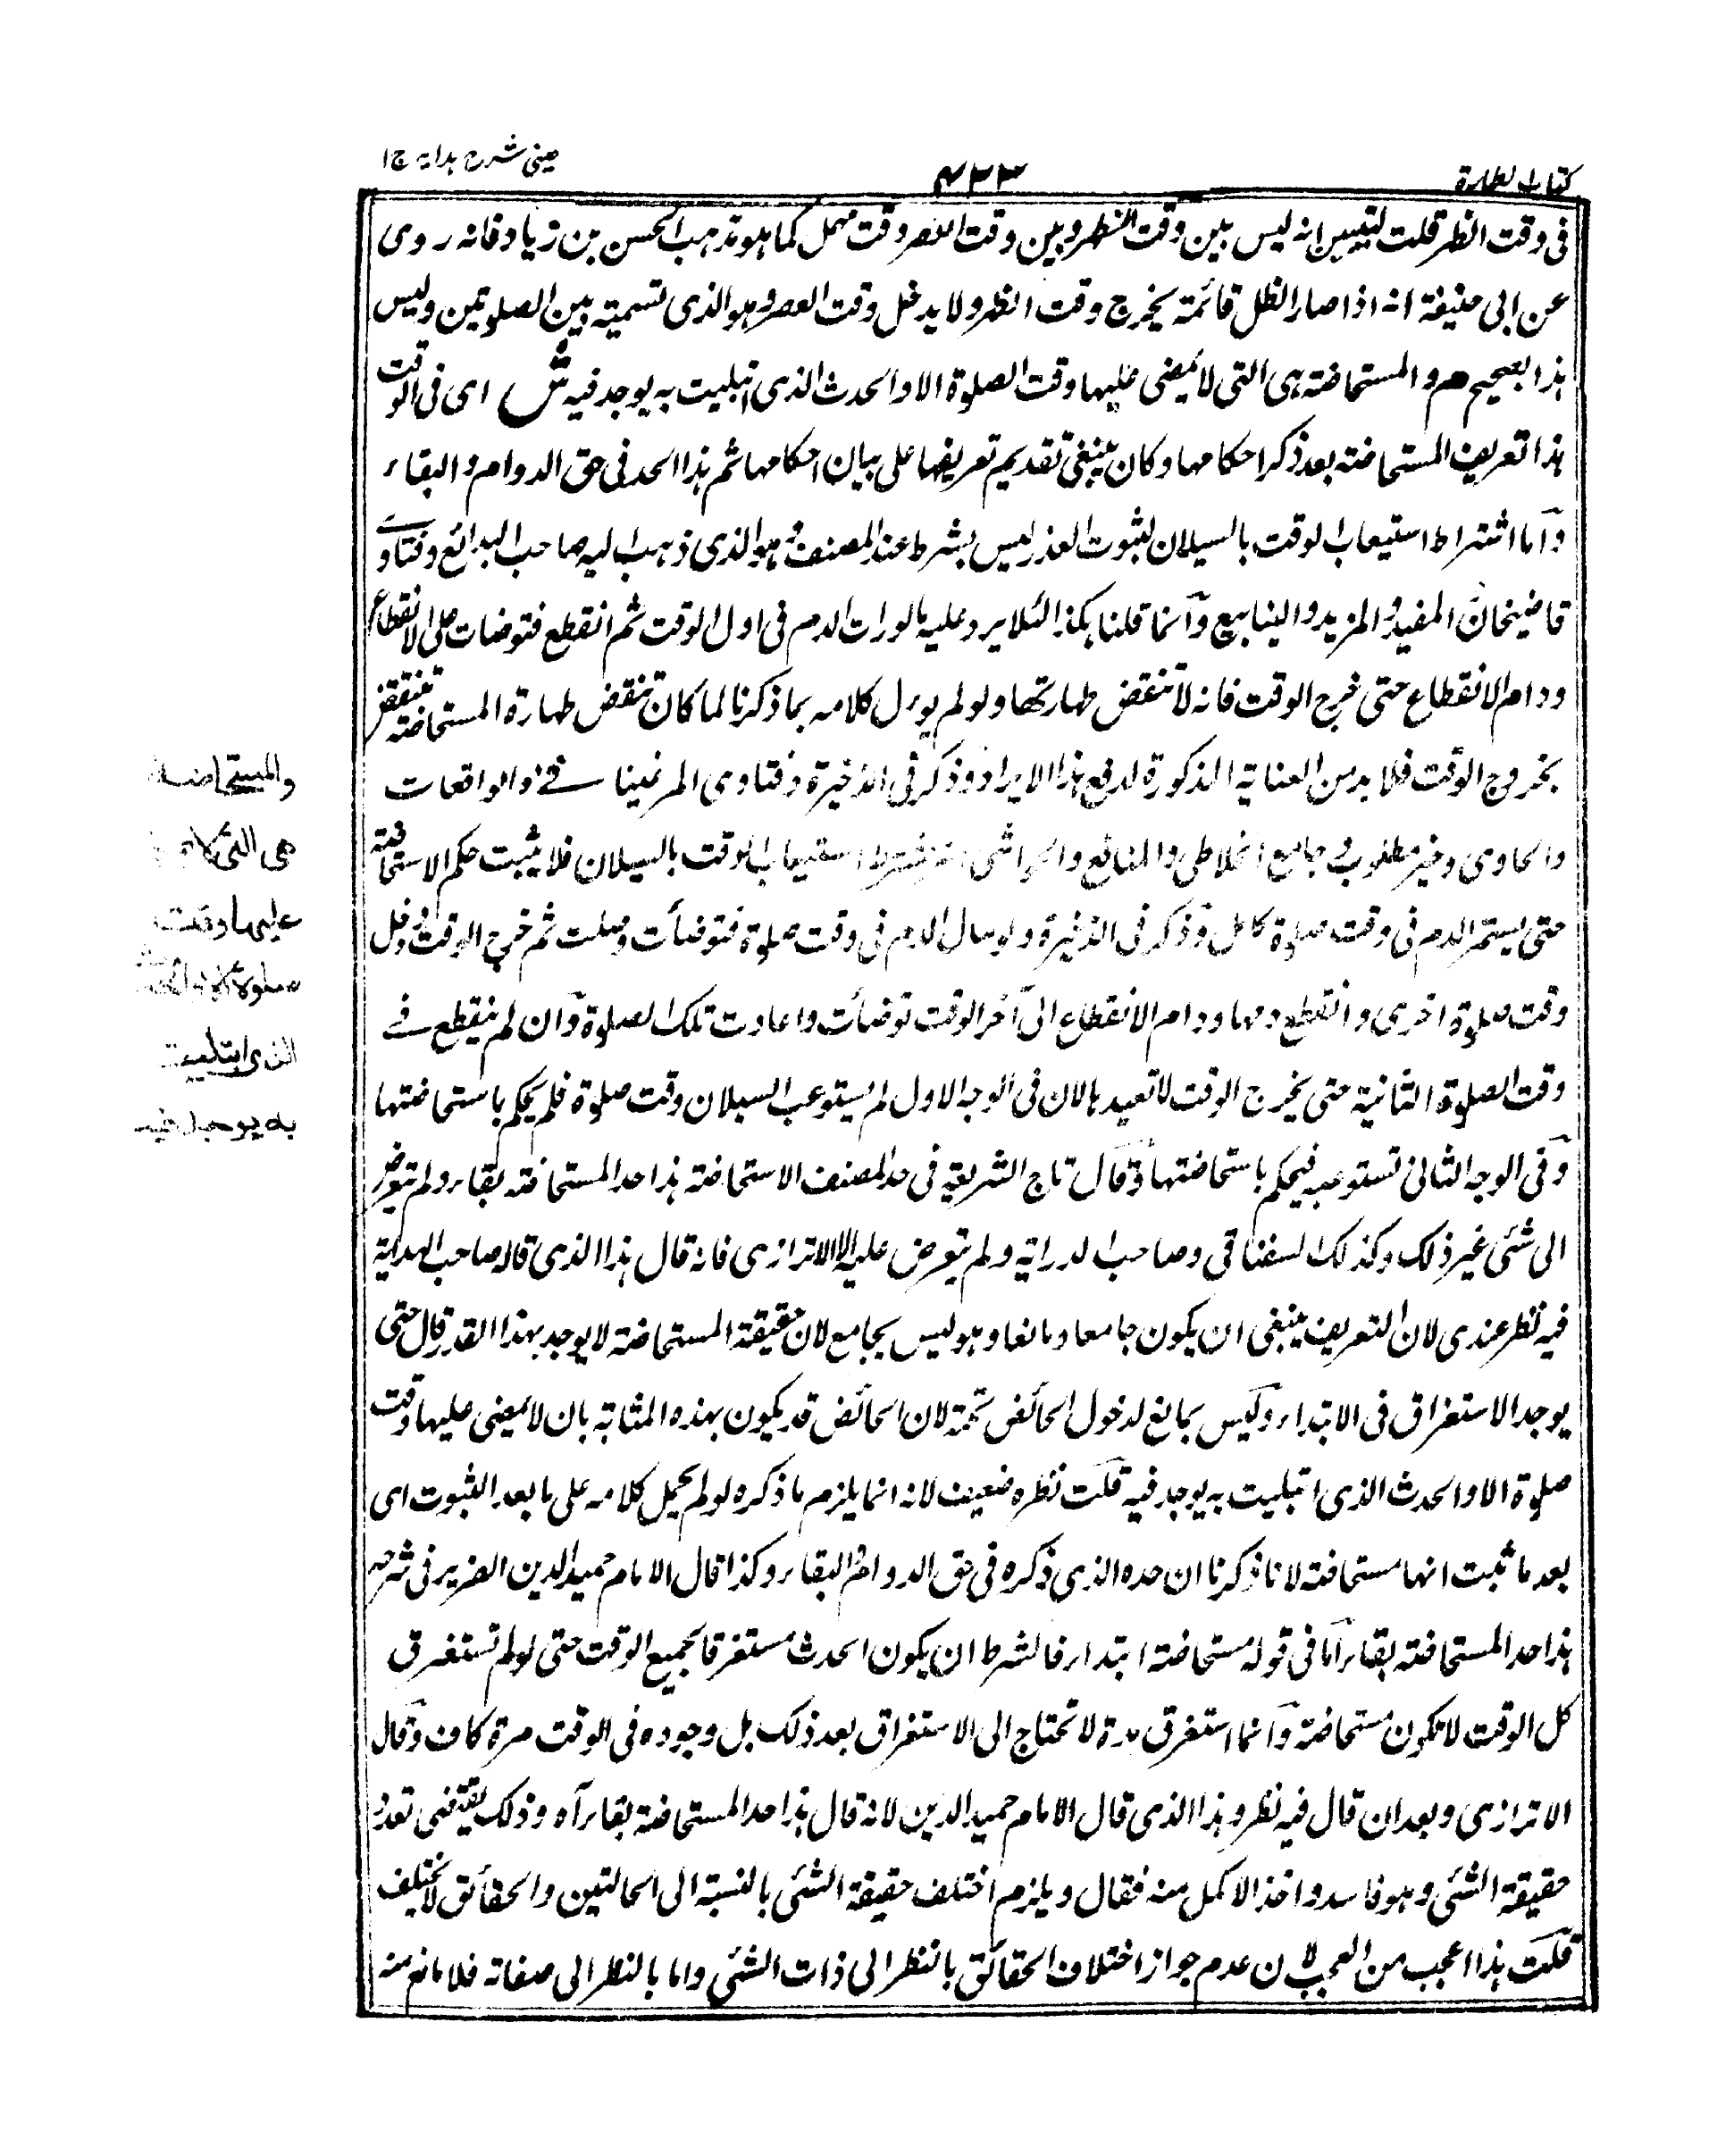 كتاب الطهارة
٤٣٣
عينى شرح هدايه ج ١
فى وقت الظهر قلت لتبيين انه ليس بين وقت الظهر وبين وقت العصر وقت مهمل كما هو مذهب الحسن بن زياد فانه روى
عن ابى حنيفة انه اذا صار الظل قائمة يخرج وقت الظهر ولا يدخل وقت العصر وهو الذى تسميته بين الصلوتين وليس
هذا بصحيح م والمستحاضة هى التى لا يمضى عليها وقت الصلوة الا والحدث الذى ابتليت به يوجد فيه ش اى فى الوقت
هذا تعريف المستحاضة بعد ذكر احكامها وكان ينبغى تقديم تعريفها على بيان احكامها ثم هذا الحد فى حق الدوام والبقاء
وأما اشتراط استيعاب الوقت بالسيلان لثبوت العذر ليس بشرط عند المصنف وهو الذى ذهب اليه صاحب البدائع وفتاوى
قاضيخان والمفيد والمزيد والينابيع وانما قلنا هكذا لئلا يرد عليه ما لو رات الدم فى اول الوقت ثم انقطع فتوضات على الانقطاع
ودام الانقطاع حتى خرج الوقت فانه لا تنتقض طهارتها ولو لم يورل كلامه بما ذكرنا لما كان تنقض طهارة المستحاضة تنتقض
بخروج الوقت فلا بد من العناية المذكورة لدفع هذا الايراد وذكر فى الذخيرة وفتاوى المرغينانى والواقعات
والحاوى وخير مطلوب وجامع الخلاطى والمنافع والحواشى انه يشترط استيعاب الوقت بالسيلان فلا يثبت حكم الاستحاضة
حتى يستمر الدم فى وقت صلوة كامل وذكر فى الذخيرة ولو سال الدم فى وقت صلوة فتوضأت وصلت ثم خرج الوقت ودخل
وقت صلوة اخرى وانقطع دمها ودام الانقطاع الى آخر الوقت توضأت واعادت تلك الصلوة وان لم ينقطع فى
وقت الصلوة الثانية حتى يخرج الوقت لا تعيدها لان فى الوجه الاول لم يستوعب السيلان وقت صلوة فلم يحكم باستحاضتها
وفى الوجه الثانى تستوعبه فيحكم باستحاضتها وقال تاج الشريعة فى حد المصنف الاستحاضة هذا حد المستحاضة بقاء ولم يتعرض
الى شئى غير ذلك وكذلك السغناقى وصاحب الدراية ولم يتعرض عليه الا الاترازى فانه قال هذا الذى قاله صاحب الهداية
فيه نظر عندى لان التعريف ينبغى ان يكون جامعا ومانعا وهو ليس بجامع لان حقيقة المستحاضة لا يوجد بهذا القدر قال حتى
يوجد الاستغراق فى الابتداء وليس بمانع لدخول الحائض تحته لان الحائض قد يكون بهذه المثابة بان لا يمضى عليها وقت
صلوة الا والحدث الذى ابتليت به يوجد فيه قلت نظره ضعيف لانه انما يلزم ما ذكره لو لم يحمل كلامه على ما بعد الثبوت اى
بعد ما ثبت انها مستحاضة لانا ذكرنا ان حده الذى ذكره فى حق الدوام والبقاء وكذا قال الامام حميد الدين الضرير فى شرحه
هذا حد المستحاضة بقاء اما فى قوله مستحاضة ابتداء فالشرط ان يكون الحدث مستغرقا لجميع الوقت حتى لو لم تستغرق
كل الوقت لا تكون مستحاضة وانما استغرق مرة لا تحتاج الى الاستغراق بعد ذلك بل وجوده فى الوقت مرة كاف وقال
الاترازى وبعد ان قال فيه نظر وهذا الذى قال الامام حميد الدين لانه قال هذا حد المستحاضة بقاء آه وذلك يقتضى تعدد
حقيقة الشئى وهو فاسد واخذ الاكمل منه فقال ويلزم اختلف حقيقة الشئى بالنسبة الى الحالتين والحقائق لا تختلف
قلت هذا اعجب من العجب لان عدم جواز اختلاف الحقائق بالنظر الى ذات الشئى واما بالنظر الى صفاته فلا مانع منه
والمستحاضة
هى التى لا
عليها وقت
صلوة الا
الذى ابتليت
به يوجد فيه